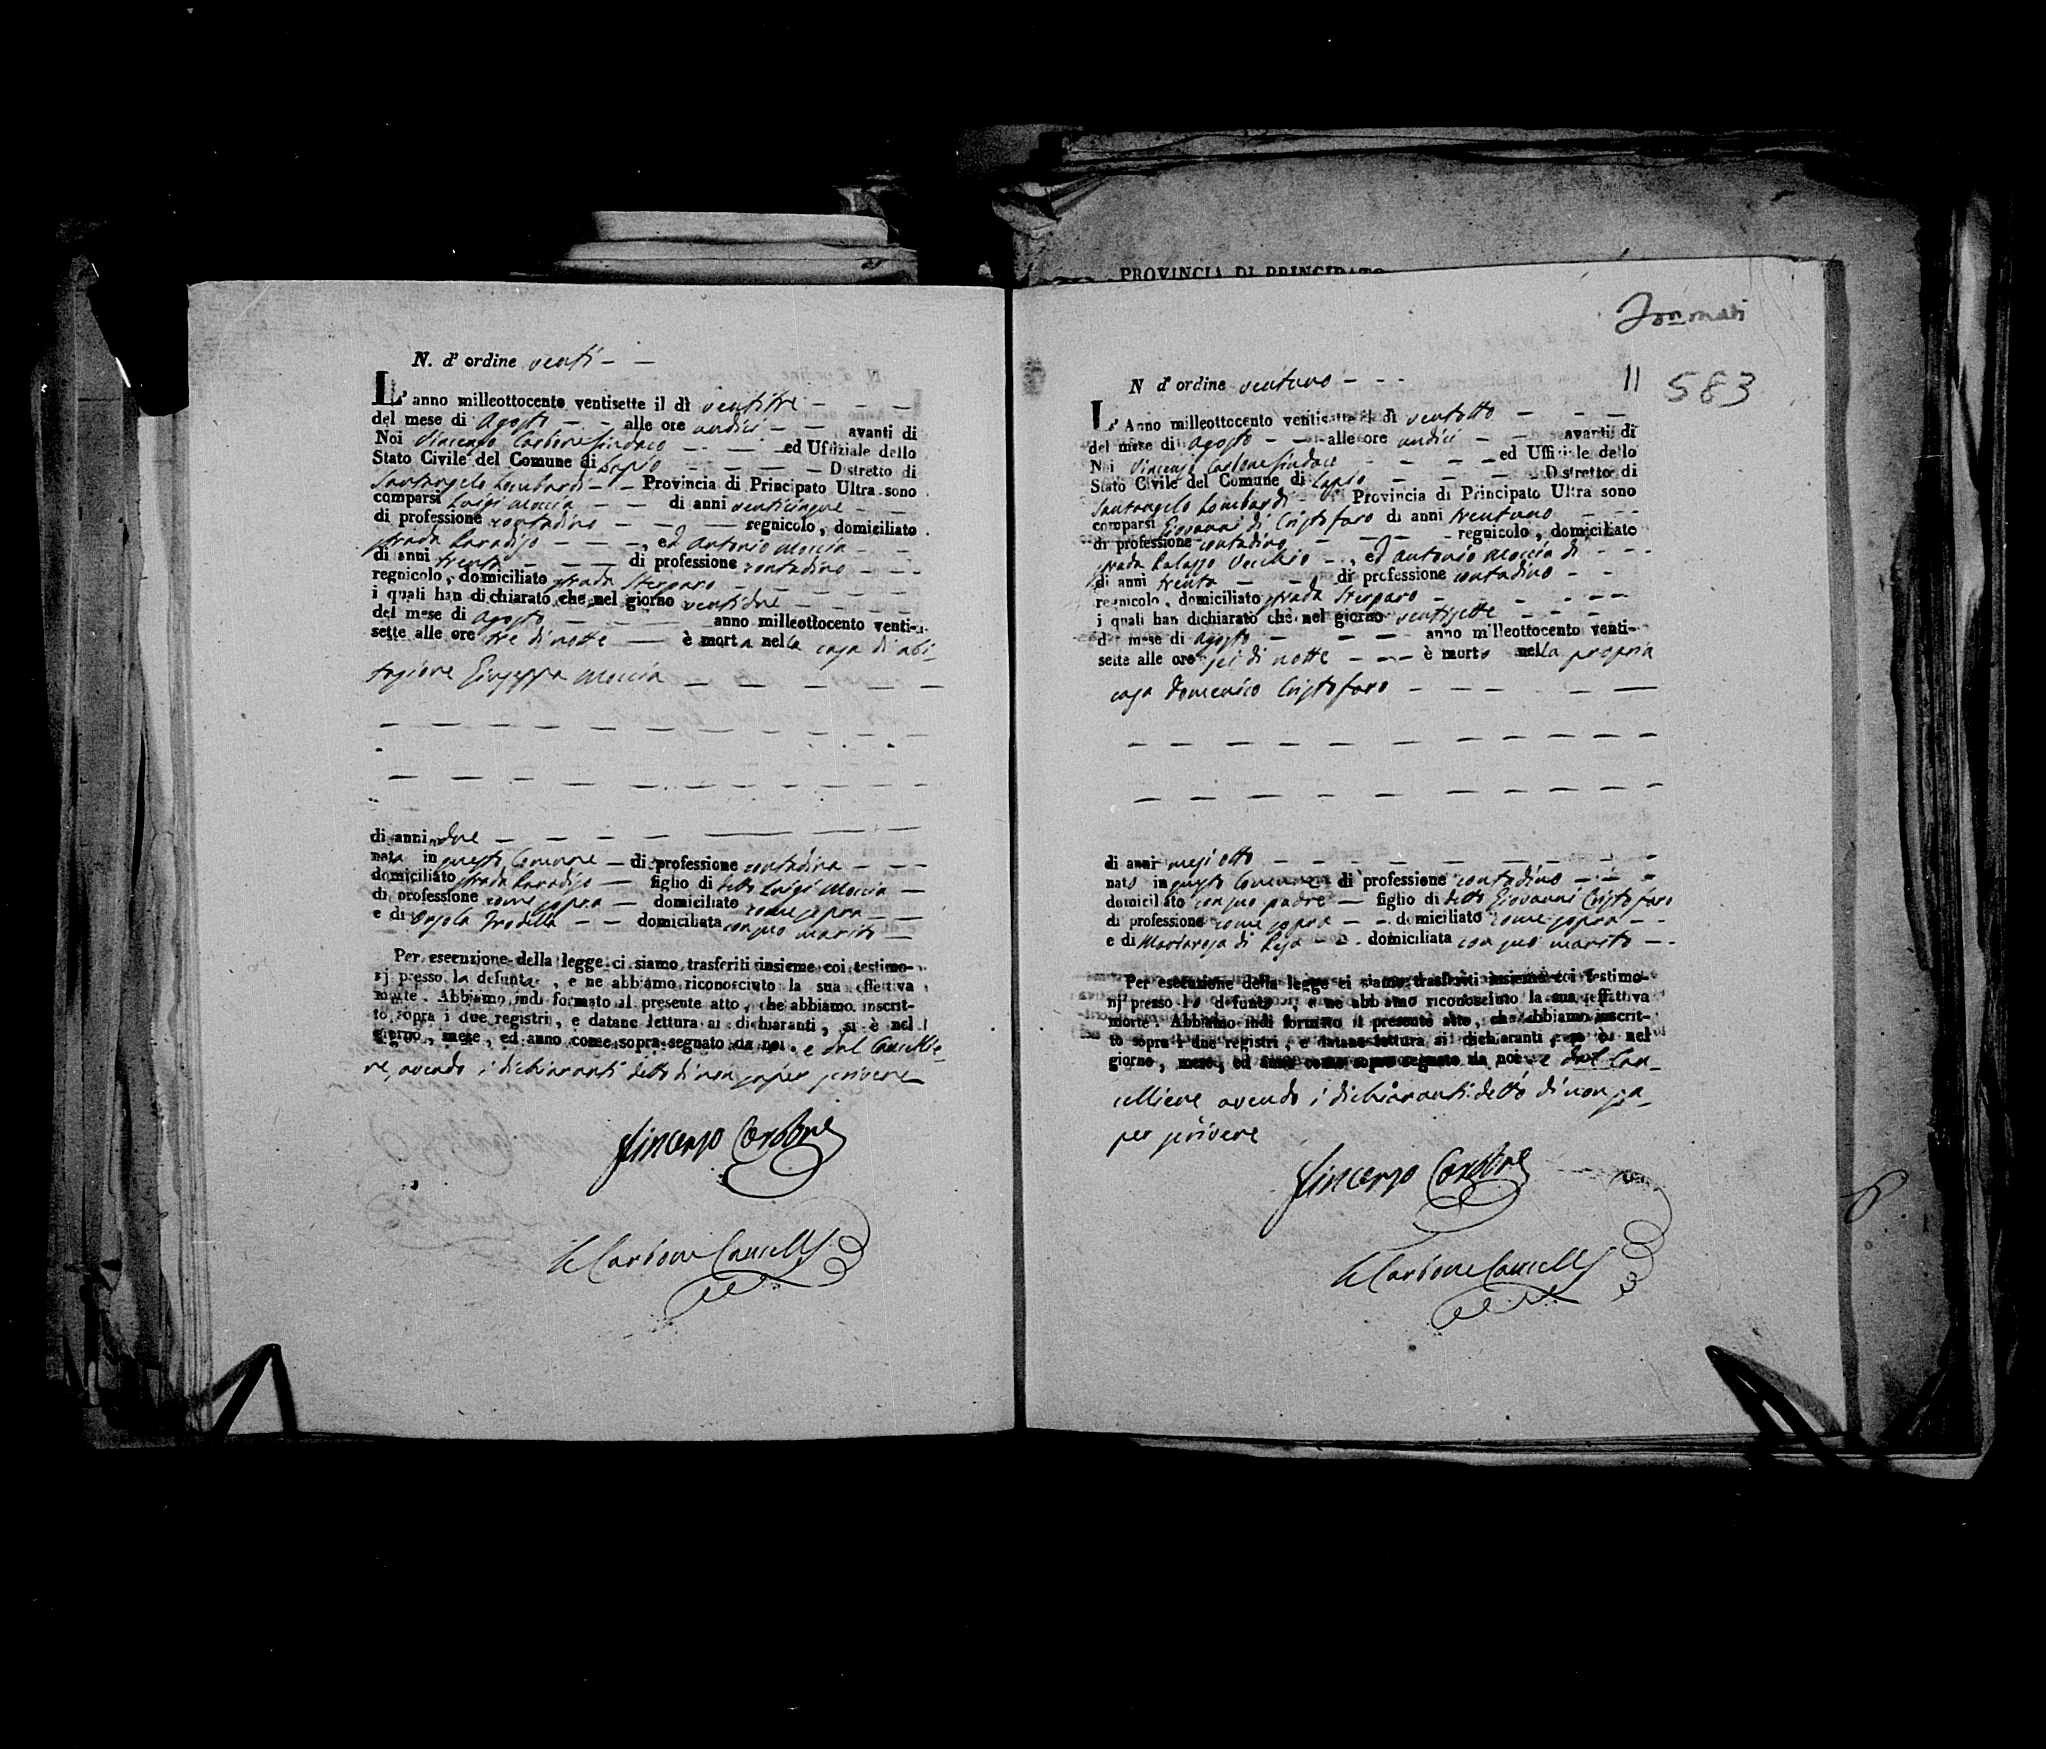 PROVINCIA DI PRINCIPATO
N. d' ordine venti
L' anno milleottocento ventisette il dì ventitre
del mese di Agosto alle ore undici avanti di
Noi Vincenzo Carbone Sindaco ed Uffiziale dello
Stato Civile del Comune di Lapio Distretto di
Santangelo Lombardi Provincia di Principato Ultra sono
comparsi Luigi Moccia di anni venticinque
di professione contadino regnicolo, domiciliato
strada Paradiso, ed Antonio Moccia
di anni trenta di professione contadino
regnicolo, domiciliato strada
i quali han dichiarato che nel giorno ventidue
del mese di Agosto anno milleottocento venti-
sette alle ore tre di notte è morta nella casa di abi-
tazione Giuseppa Moccia
di anni due
nata in questo Comune di professione contadina
domiciliato strada Paradiso figlio di detto Luigi Moccia
di professione come sopra domiciliato come sopra
e di Orsola domiciliata con suo marito
Per esecuzione della legge ci siamo trasferiti insieme coi testimo-
nj presso la defunta, e ne abbiamo riconosciuto la sua effettiva
morte. Abbiamo indi formato il presente atto, che abbiamo inscrit-
to sopra i due registri, e datane lettura ai dichiaranti, si è nel
giorno, mese, ed anno come sopra segnato da noi e dal Cancellie-
re, avendo i dichiaranti detto di non saper scrivere
Vincenzo Carbone
Carbone Cancell
11 583
N d' ordine ventuno
L' Anno milleottocento ventisette il dì ventotto
del mese di Agosto alle ore undici avanti di
Noi Vincenzo Carbone Sindaco ed Uffiziale dello
Stato Civile del Comune di Lapio Distretto di
Santangelo Lombardi Provincia di Principato Ultra sono
comparsi Giovanni di Cristofaro di anni trentuno
di professione contadino regnicolo, domiciliato
strada Palazzo Vecchio, ed Antonio Moccia di
di anni trenta di professione contadino
regnicolo, domiciliato strada
i quali han dichiarato che nel giorno ventisette
del mese di Agosto anno milleottocento venti-
sette alle ore sei di notte è morto nella propria
casa Domenico Cristofaro
di anni mesi otto
nato in questo Comune di professione contadino
domiciliato con suo padre figlio di detto Giovanni Cristofaro
di professione come sopra domiciliato come sopra
e di Mariarosa di domiciliata con suo marito
Per esecuzione della legge ci siamo trasferiti insieme coi testimo-
nj presso lo defunto, e ne abbiamo riconosciuto la sua effettiva
morte. Abbiamo indi formato il presente atto, che abbiamo inscrit-
to sopra i due registri, e datane lettura ai dichiaranti, si è nel
giorno, mese, ed anno come sopra segnato da noi e dal Can-
celliere avendo i dichiaranti detto di non sa-
per scrivere
Vincenzo Carbone
Carbone Cancell